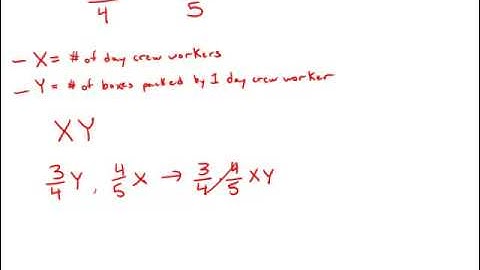 4 5
- X = # of day crew workers
- Y = # of boxes packed by 1 day crew worker
XY
3/4 Y, 4/5 X → 3/4 · 4/5 XY